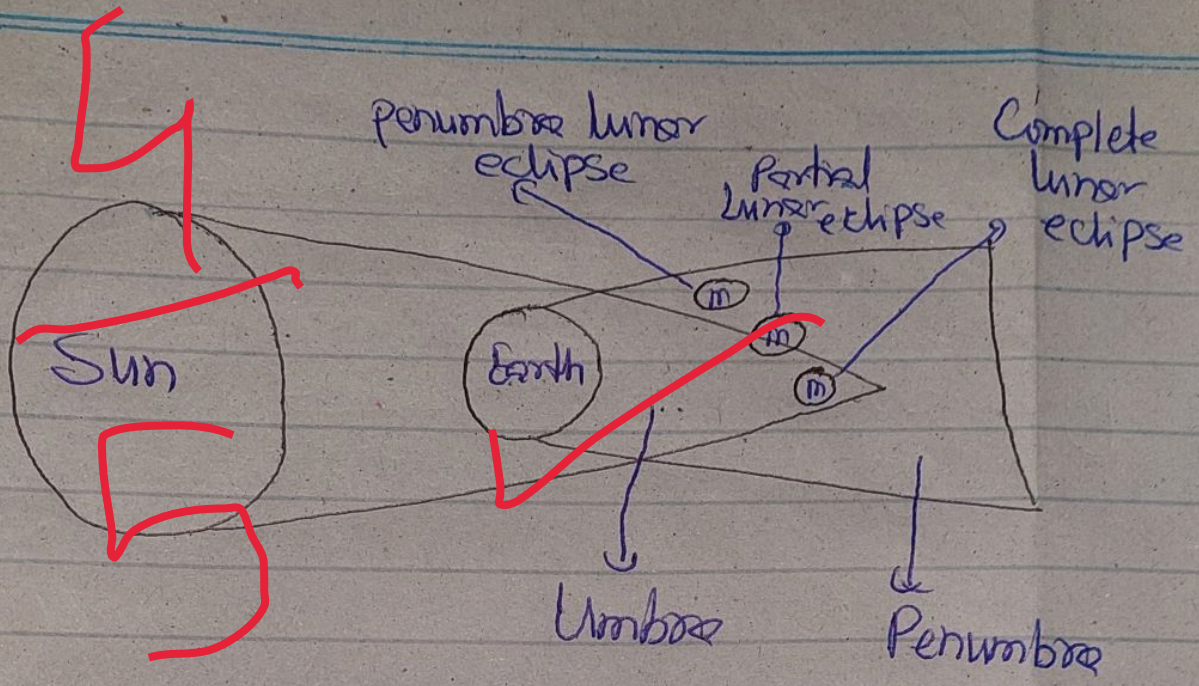 4
5
penumbra lunar
eclipse
Partial
Lunar eclipse
Complete
lunar
eclipse
Sun
Earth
m
m
m
Umbra
Penumbra